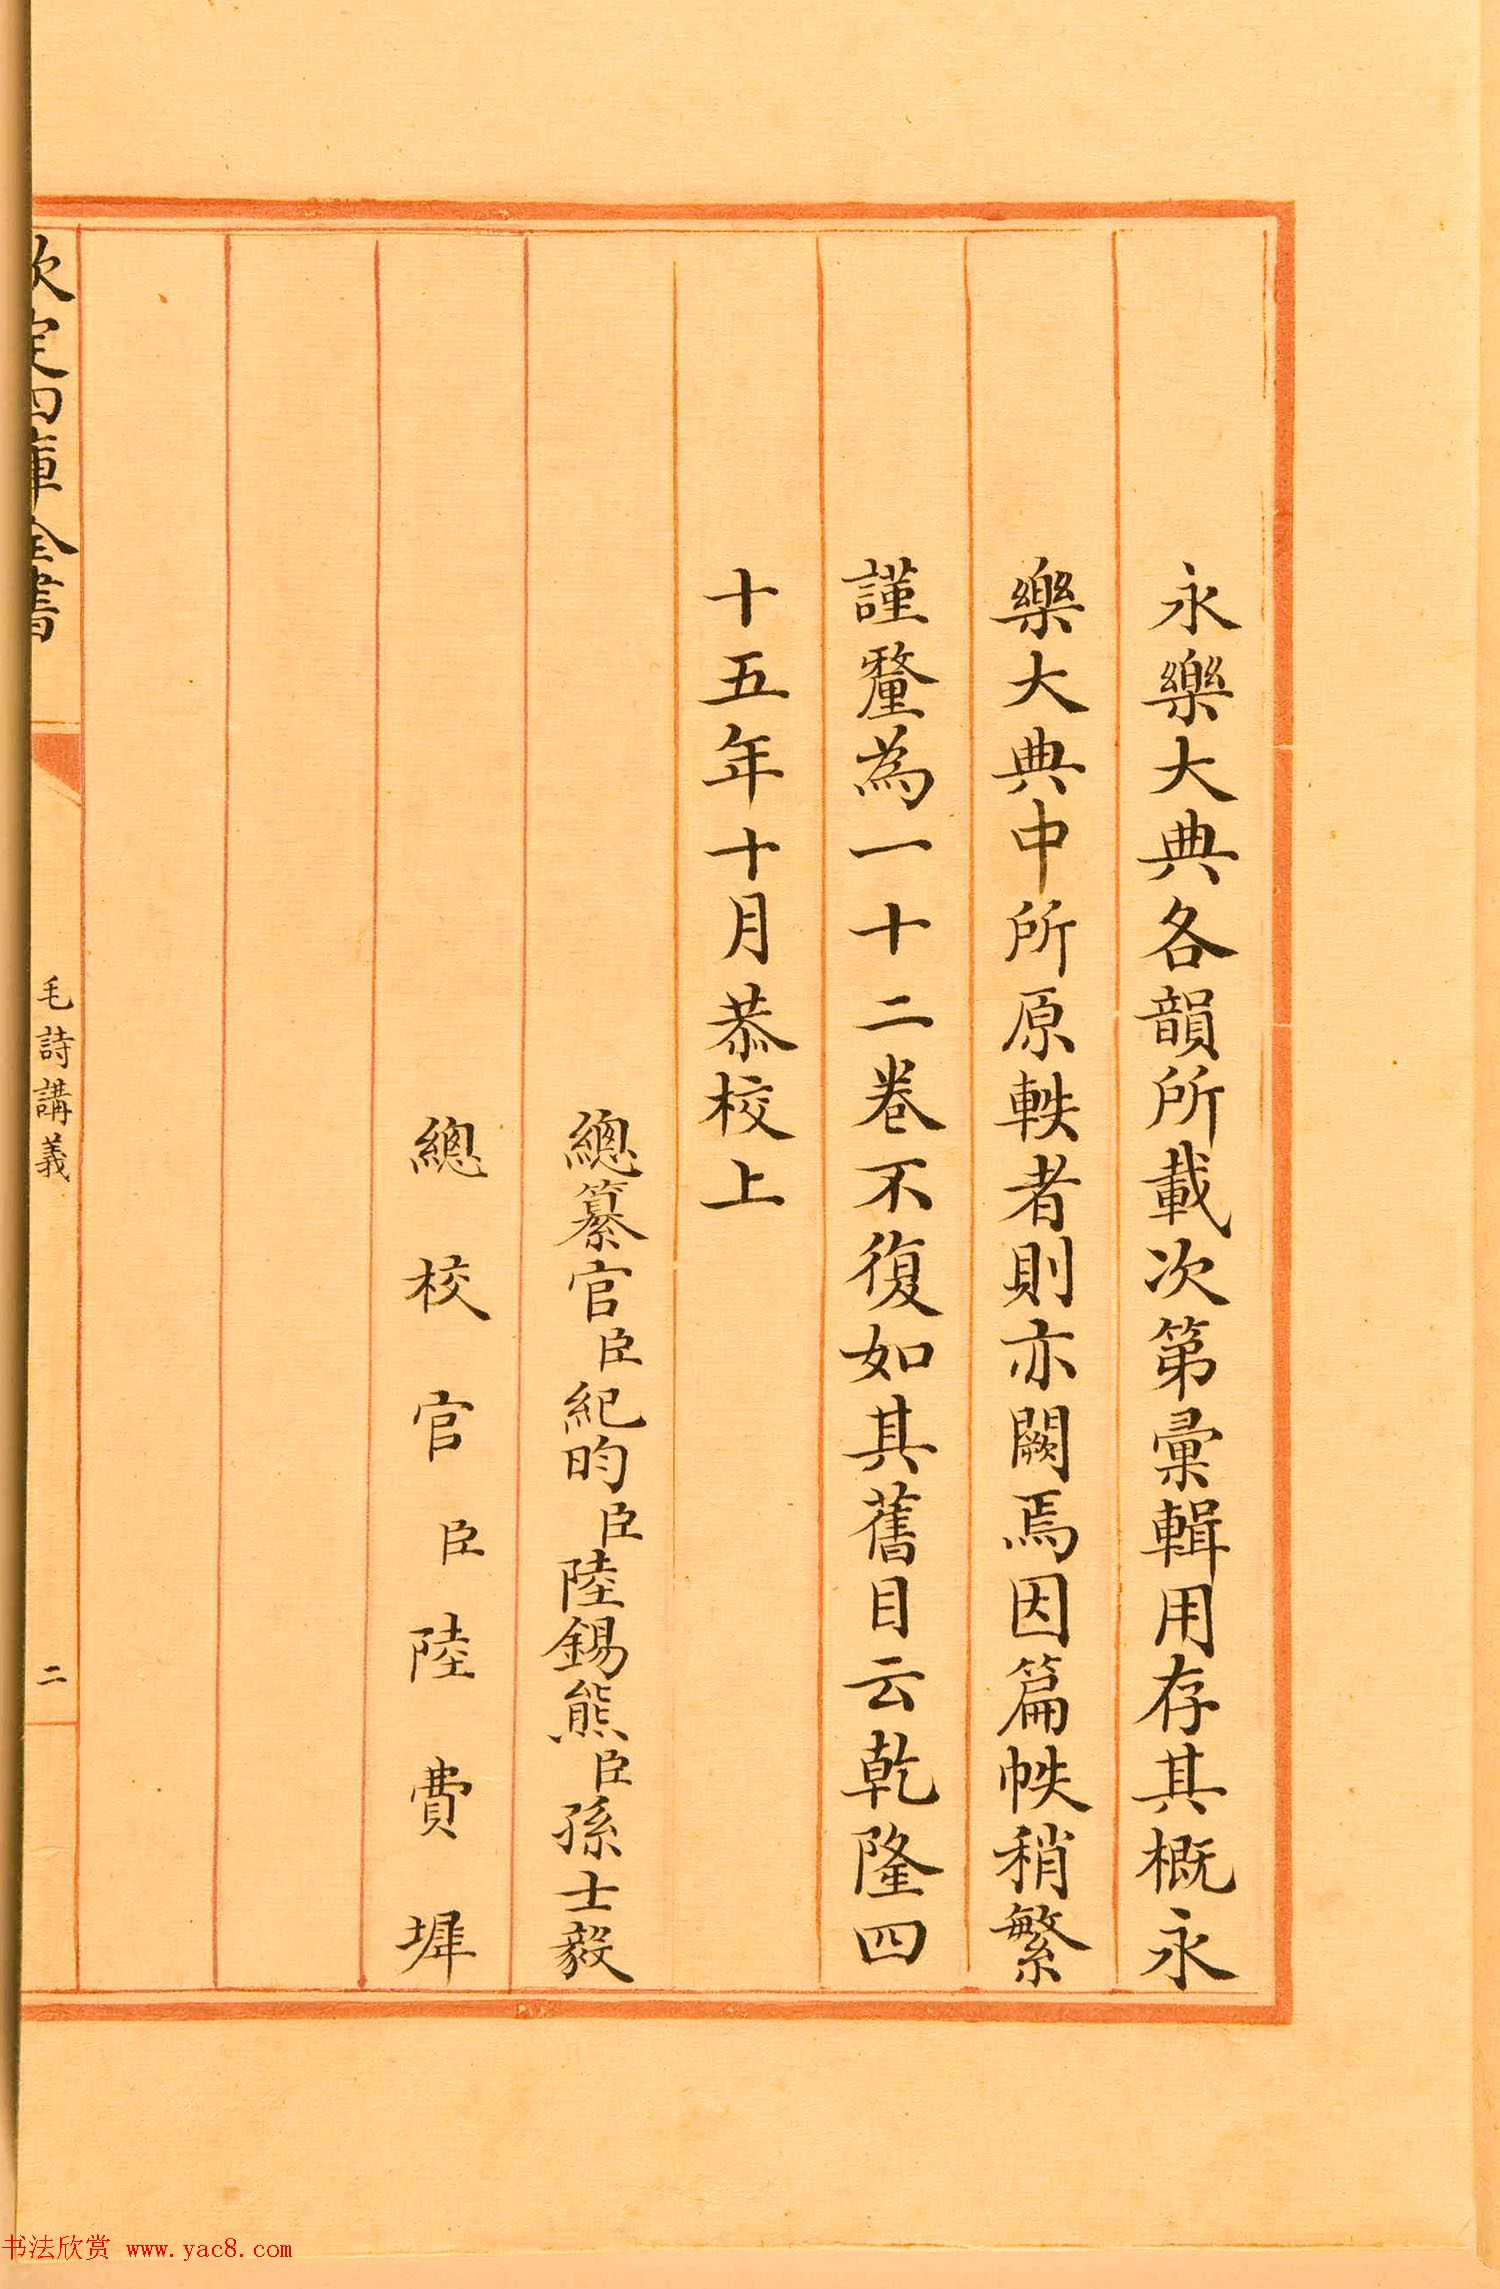 永樂大典各韻所載次第彙輯用存其概永
樂大典中所原軼者則亦闕焉因篇帙稍繁
謹釐為一十二卷不復如其舊目云乾隆四
十五年十月恭校上
總纂官臣紀昀臣陸錫熊臣孫士毅
總校官臣陸費墀
欽定四庫全書
毛詩講義
二
书法欣赏 www.yac8.com